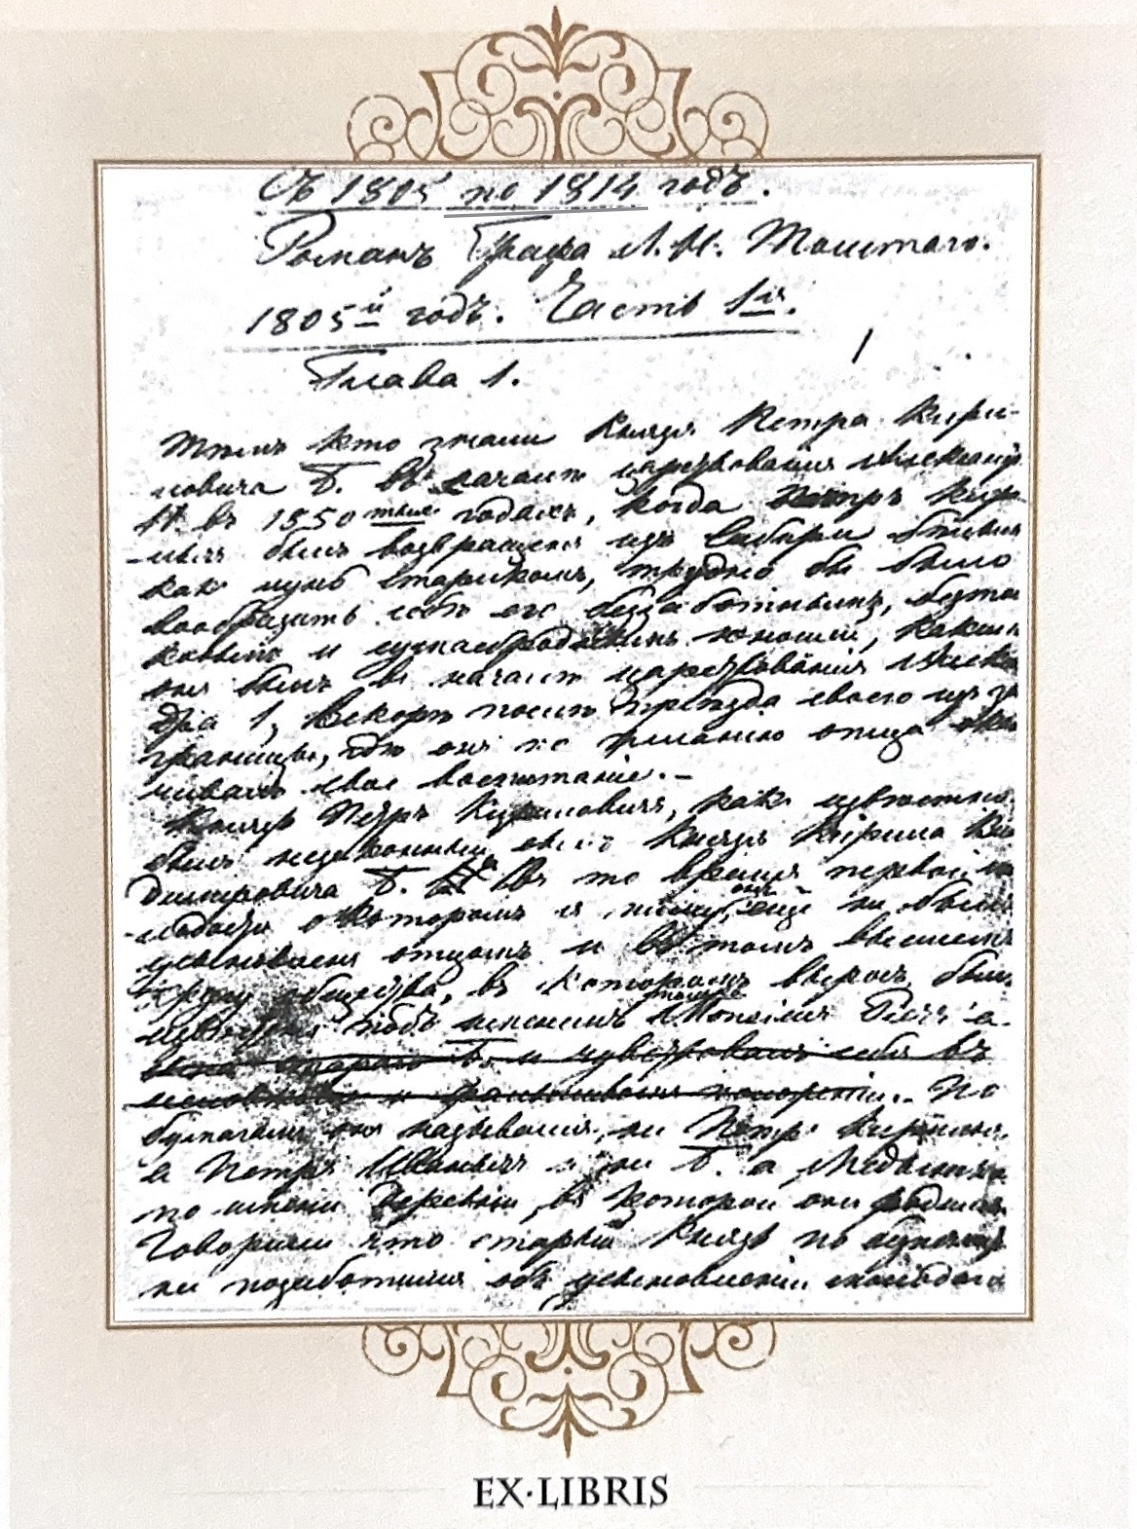 Съ 1805 по 1814 годъ.
Романъ Графа Л. Н. Толстаго.
1805й годъ. Часть 1я.
Глава 1.
Тѣмъ кто знали Князя Петра Кири-
ловича Б. въ началѣ царствованія Александ.
II въ 1850тыхъ годахъ, когда Петръ Кири-
-лычъ былъ возвращенъ изъ Сибири бѣлымъ
какъ лунь старикомъ, трудно бы было
вообразить себѣ его беззаботнымъ, безтол
ковымъ и сумасброднымъ юношей, какимъ
онъ былъ въ началѣ царствованія Алекса
дра 1, вскорѣ послѣ пріѣзда своего изъ за
границы, гдѣ онъ по желанію отца окан
чивалъ свое воспитаніе.-
Князь Петръ Кириловичъ, какъ извѣстно
былъ незаконный сынъ Князя Кирила Вла
димировича Б. Въ то время первой мо
-лодости о которомъ я пишу, онъ еще не былъ
усыновленъ отцомъ и въ томъ высшемъ
кругу общества, въ которомъ выросъ былъ
извѣстенъ подъ именемъ только Monsieur Pierr'а.
Б. и чувствовалъ себя въ
и фальшивомъ положеніи.. По
бумагамъ онъ назывался, не Петр Кирилыч.
а Петръ Иванычъ и не Б. а Медынскій
по имени деревни, въ которой онъ родился.
Говорили что старый Князь по
не позаботился объ усыновленіи молодаго
EX·LIBRIS